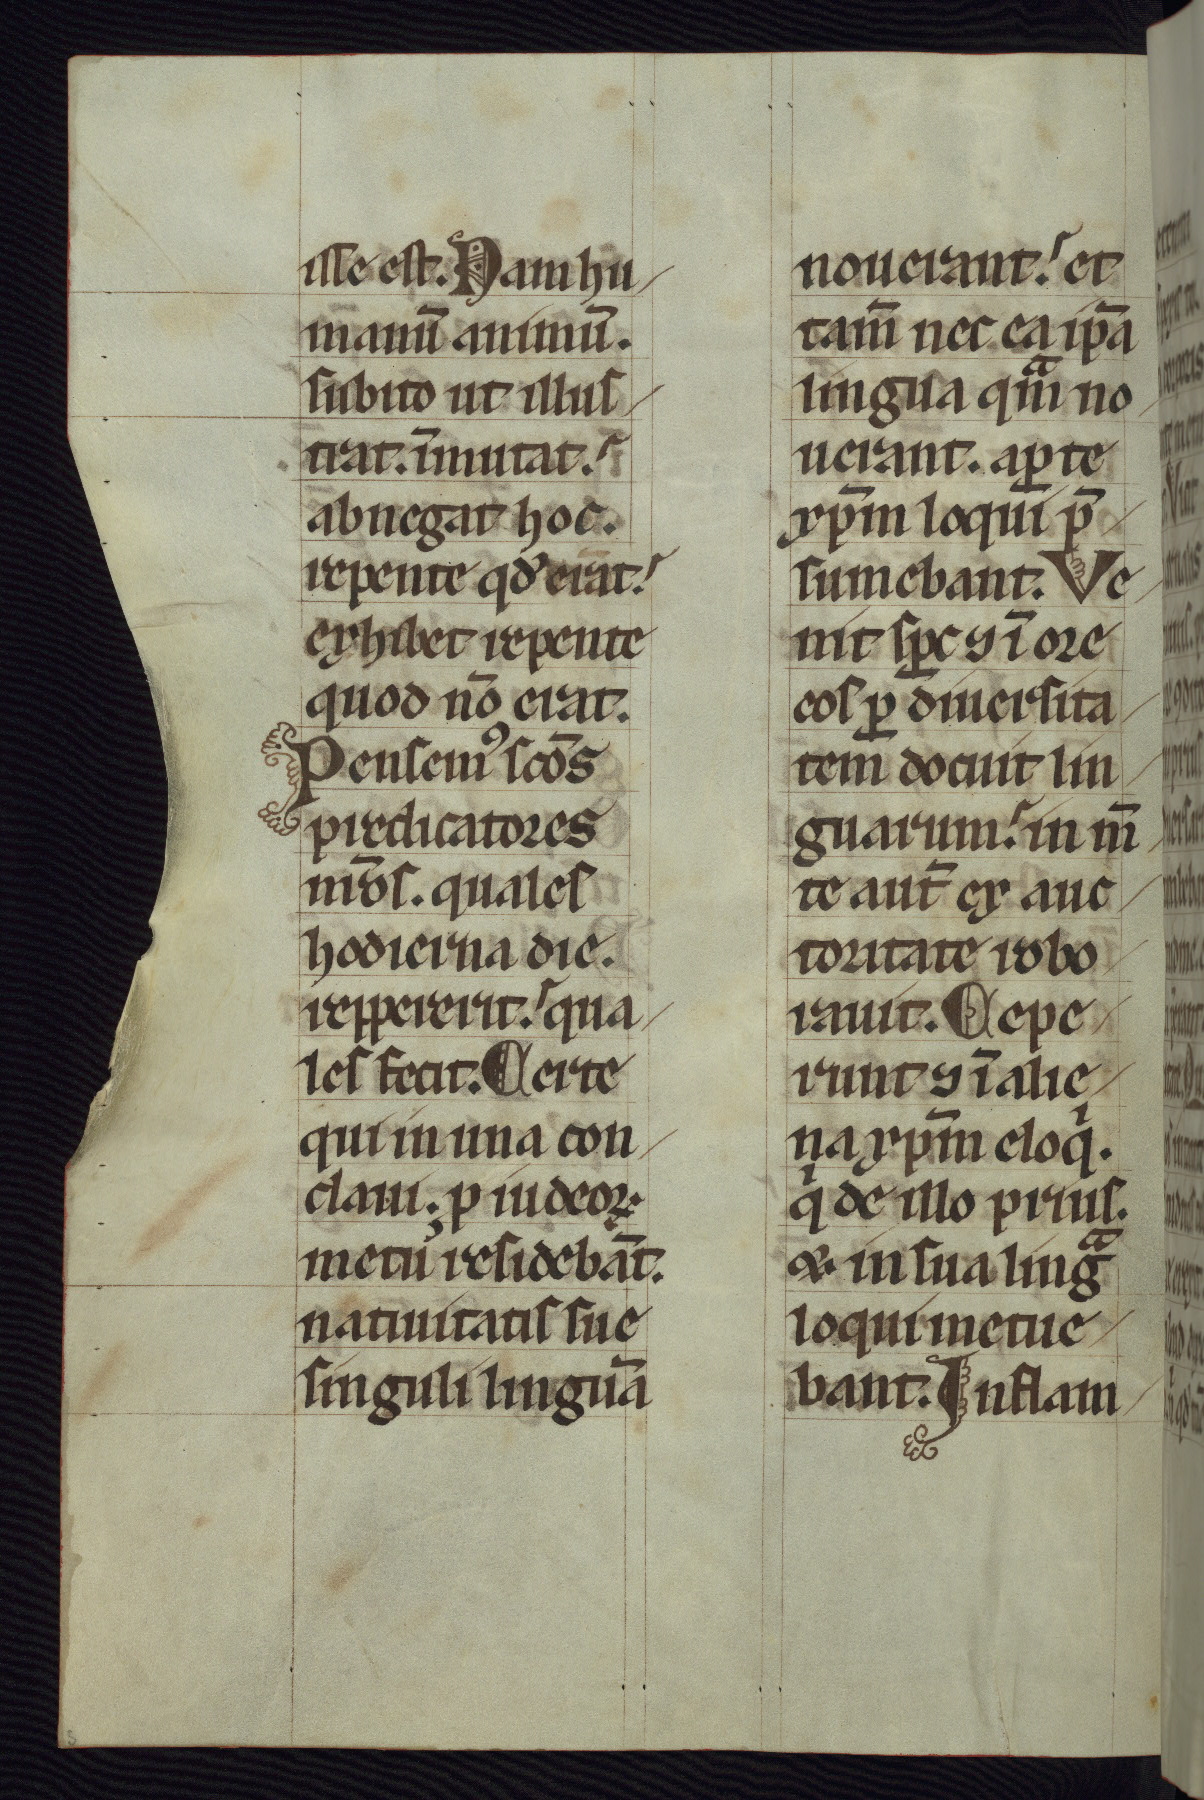 isse est. Nam hu
manū animū.
subito ut illus
trat. īmutat.
abnegat hoc.
repente qd' erat.
exhibet repente
quod nō erat.
Pensem⁹ scōs
predicatores
nr̄os. quales
hodierna die.
reppererit. qua
les fecit. Certe
qui in una con
claui. p iudeoꝝ
metū residebāt.
natiuitatis sue
singuli linguā
nouerant. et
tam̄ nec ea ip̄a
lingua qᵃm no
uerant. aꝑte
xp̄m loqui p̄
sumebant. Ve
nit sp̄c ꝯ ī ore
eos ꝑ diuersita
tem docuit lin
guarum. in m̄
te aut̄ ex auc
toritate robo
rauit. Cepe
runt ꝯ ī alie
na xp̄m eloqⁱ.
qⁱ de illo prius.
& in sua lingᵃ
loqui metue
bant. Inflam